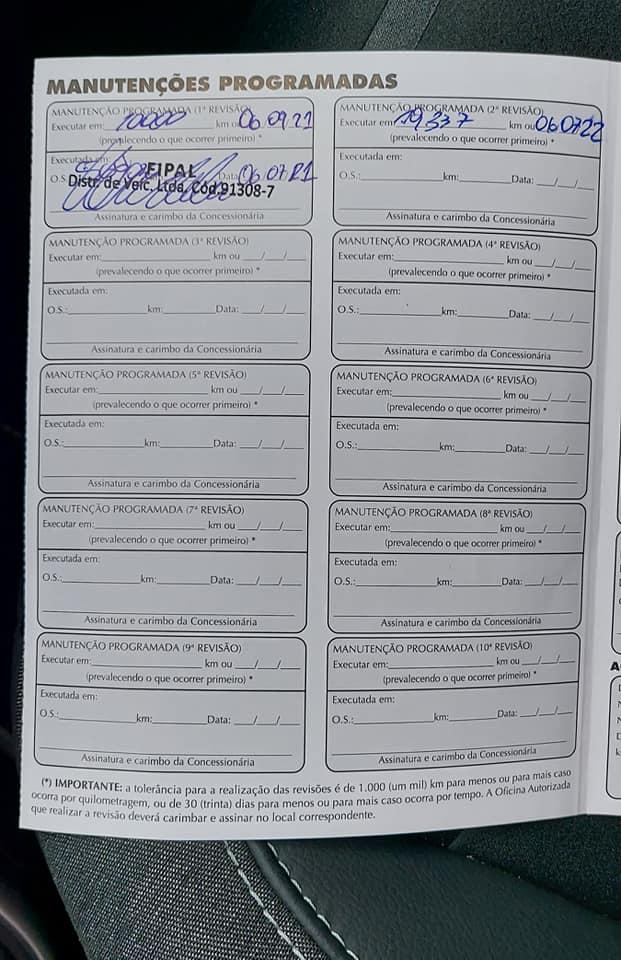 MANUTENÇÕES PROGRAMADAS
MANUTENÇÃO PROGRAMADA (1ª REVISÃO)
Executar em: 10000 km ou 06 09 21
(prevalecendo o que ocorrer primeiro) *
Executada em:
FIPAL
O.S. Data 06 07 21
Distr. de Veic. Ltda. Cód.91308-7
Assinatura e carimbo da Concessionária
MANUTENÇÃO PROGRAMADA (2ª REVISÃO)
Executar em 19337 km ou 06 07 22
(prevalecendo o que ocorrer primeiro) *
Executada em:
O.S.:____________km:________Data: ___/___/___
Assinatura e carimbo da Concessionária
MANUTENÇÃO PROGRAMADA (3ª REVISÃO)
Executar em:________________ km ou ___/___/___
(prevalecendo o que ocorrer primeiro) *
Executada em:
O.S.:____________km:________Data: ___/___/___
Assinatura e carimbo da Concessionária
MANUTENÇÃO PROGRAMADA (4ª REVISÃO)
Executar em:________________ km ou ___/___/___
(prevalecendo o que ocorrer primeiro) *
Executada em:
O.S.:____________km:________Data: ___/___/___
Assinatura e carimbo da Concessionária
MANUTENÇÃO PROGRAMADA (5ª REVISÃO)
Executar em:________________ km ou ___/___/___
(prevalecendo o que ocorrer primeiro) *
Executada em:
O.S.:____________km:________Data: ___/___/___
Assinatura e carimbo da Concessionária
MANUTENÇÃO PROGRAMADA (6ª REVISÃO)
Executar em:________________ km ou ___/___/___
(prevalecendo o que ocorrer primeiro) *
Executada em:
O.S.:____________km:________Data: ___/___/___
Assinatura e carimbo da Concessionária
MANUTENÇÃO PROGRAMADA (7ª REVISÃO)
Executar em:________________ km ou ___/___/___
(prevalecendo o que ocorrer primeiro) *
Executada em:
O.S.:____________km:________Data: ___/___/___
Assinatura e carimbo da Concessionária
MANUTENÇÃO PROGRAMADA (8ª REVISÃO)
Executar em:________________ km ou ___/___/___
(prevalecendo o que ocorrer primeiro) *
Executada em:
O.S.:____________km:________Data: ___/___/___
Assinatura e carimbo da Concessionária
MANUTENÇÃO PROGRAMADA (9ª REVISÃO)
Executar em:________________ km ou ___/___/___
(prevalecendo o que ocorrer primeiro) *
Executada em:
O.S.:____________km:________Data: ___/___/___
Assinatura e carimbo da Concessionária
MANUTENÇÃO PROGRAMADA (10ª REVISÃO)
Executar em:________________ km ou ___/___/___
(prevalecendo o que ocorrer primeiro) *
Executada em:
O.S.:____________km:________Data: ___/___/___
Assinatura e carimbo da Concessionária
(*) IMPORTANTE: a tolerância para a realização das revisões é de 1.000 (um mil) km para menos ou para mais caso
ocorra por quilometragem, ou de 30 (trinta) dias para menos ou para mais caso ocorra por tempo. A Oficina Autorizada
que realizar a revisão deverá carimbar e assinar no local correspondente.